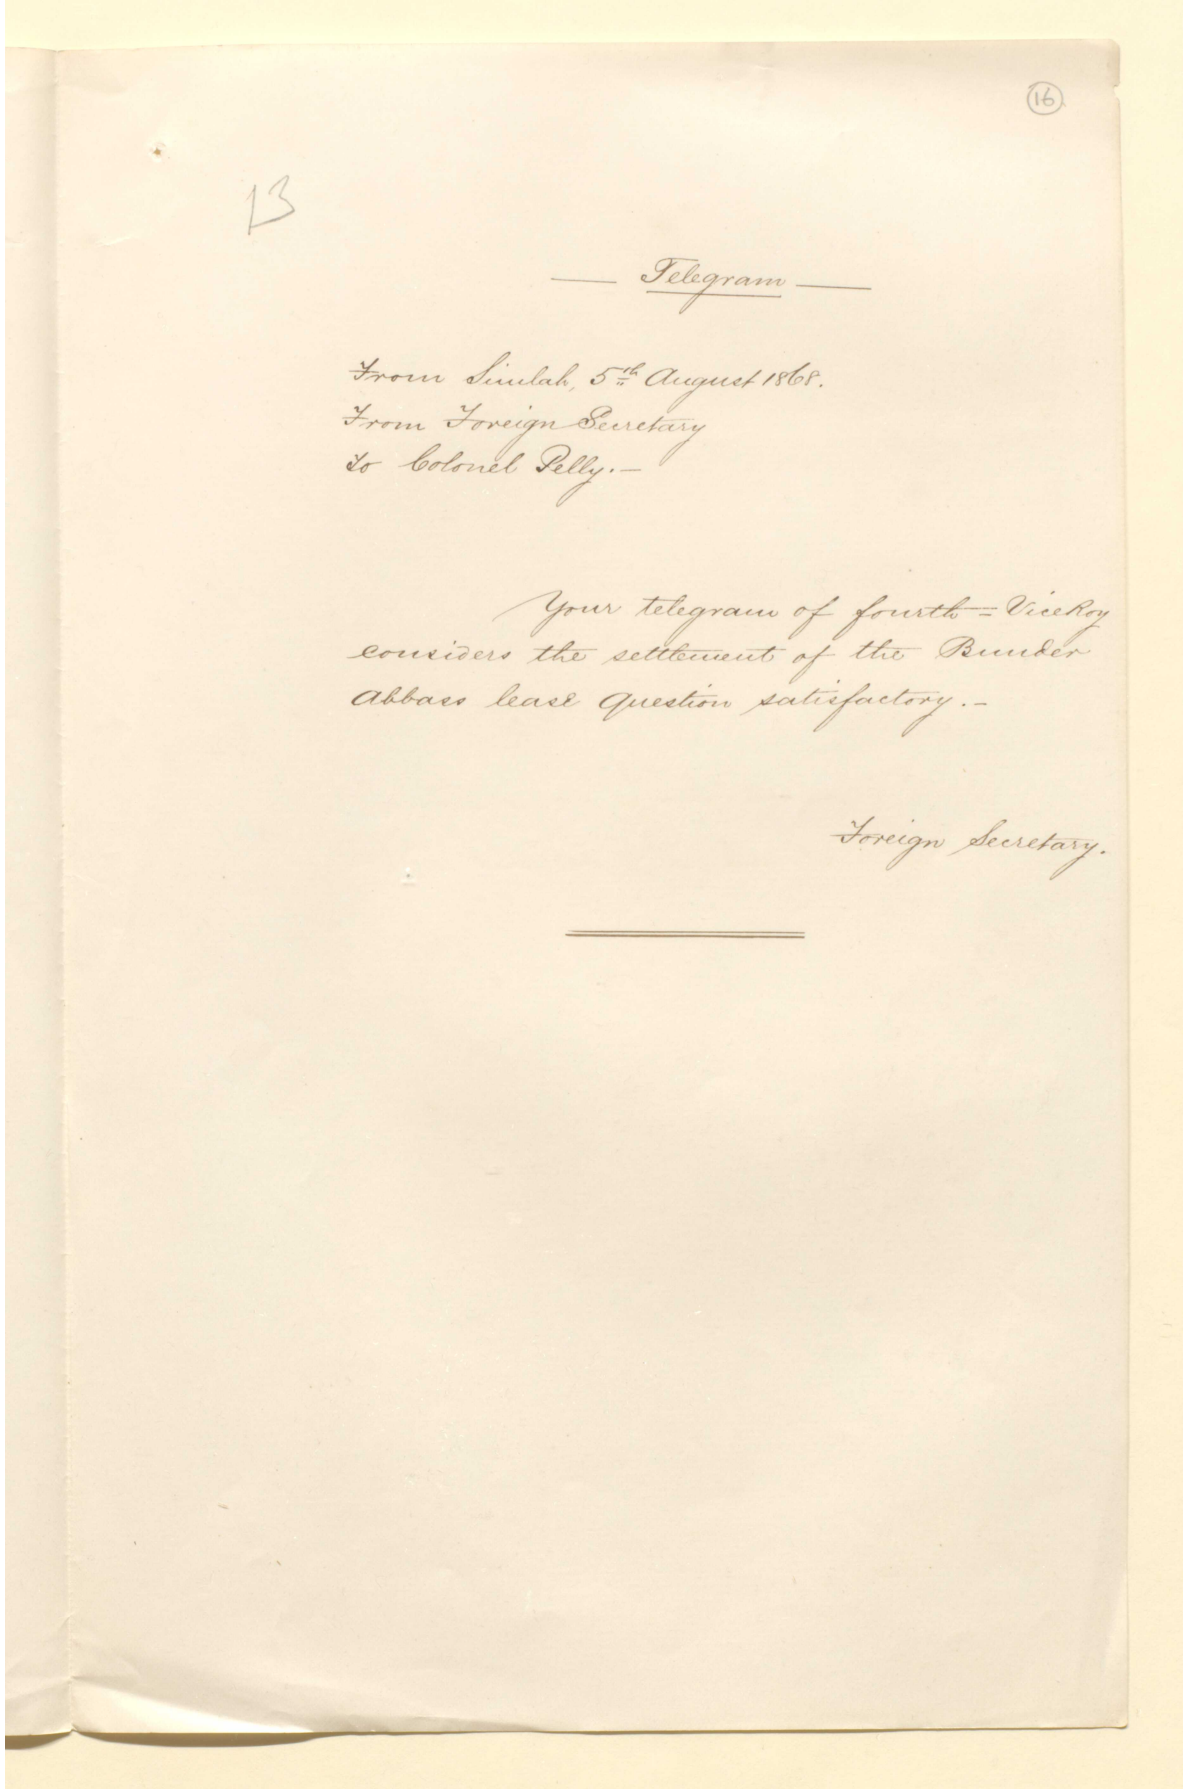 16
13
— Telegram —
From Simlah, 5th August 1868.
From Foreign Secretary
To Colonel Pelly.—
Your telegram of fourth = ViceRoy
considers the settlement of the Bunder
Abbass lease question satisfactory.—
Foreign Secretary.